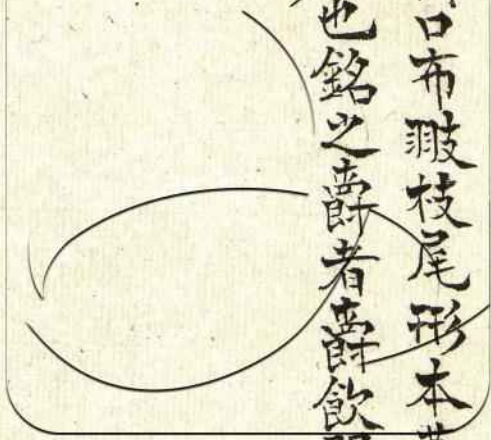 口布枝尾形本
也銘之爵者爵飲